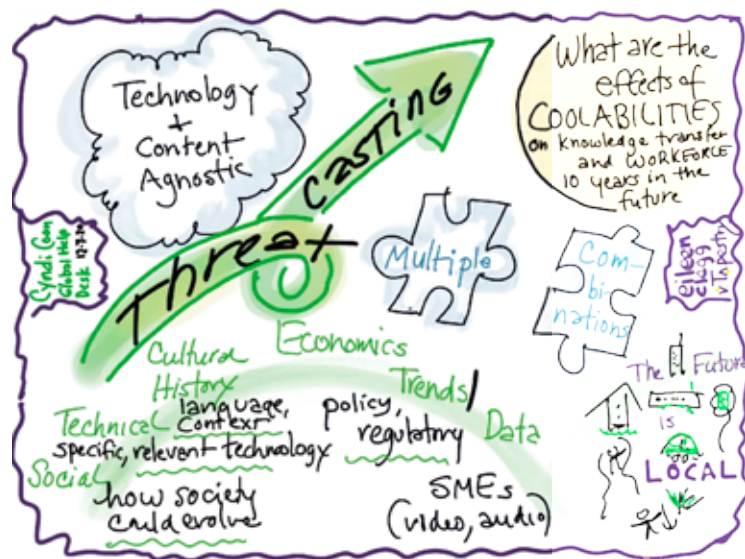 Technology
+
Content
Agnostic
Threat
Casting
What are the
effects of
COOLABILITIES
on knowledge transfer
and WORKFORCE
10 years in the
future
Cyndi
Global Help
Desk
Multiple
Com-
bi-
nations
eileen
clegg
v Tapestry
Cultural
History
Economics
Trends/
Data
Technical
language,
context
specific, relevant technology
policy,
regulatory
Social
how society
could evolve
SMEs
(video, audio)
The Future
is
LOCAL